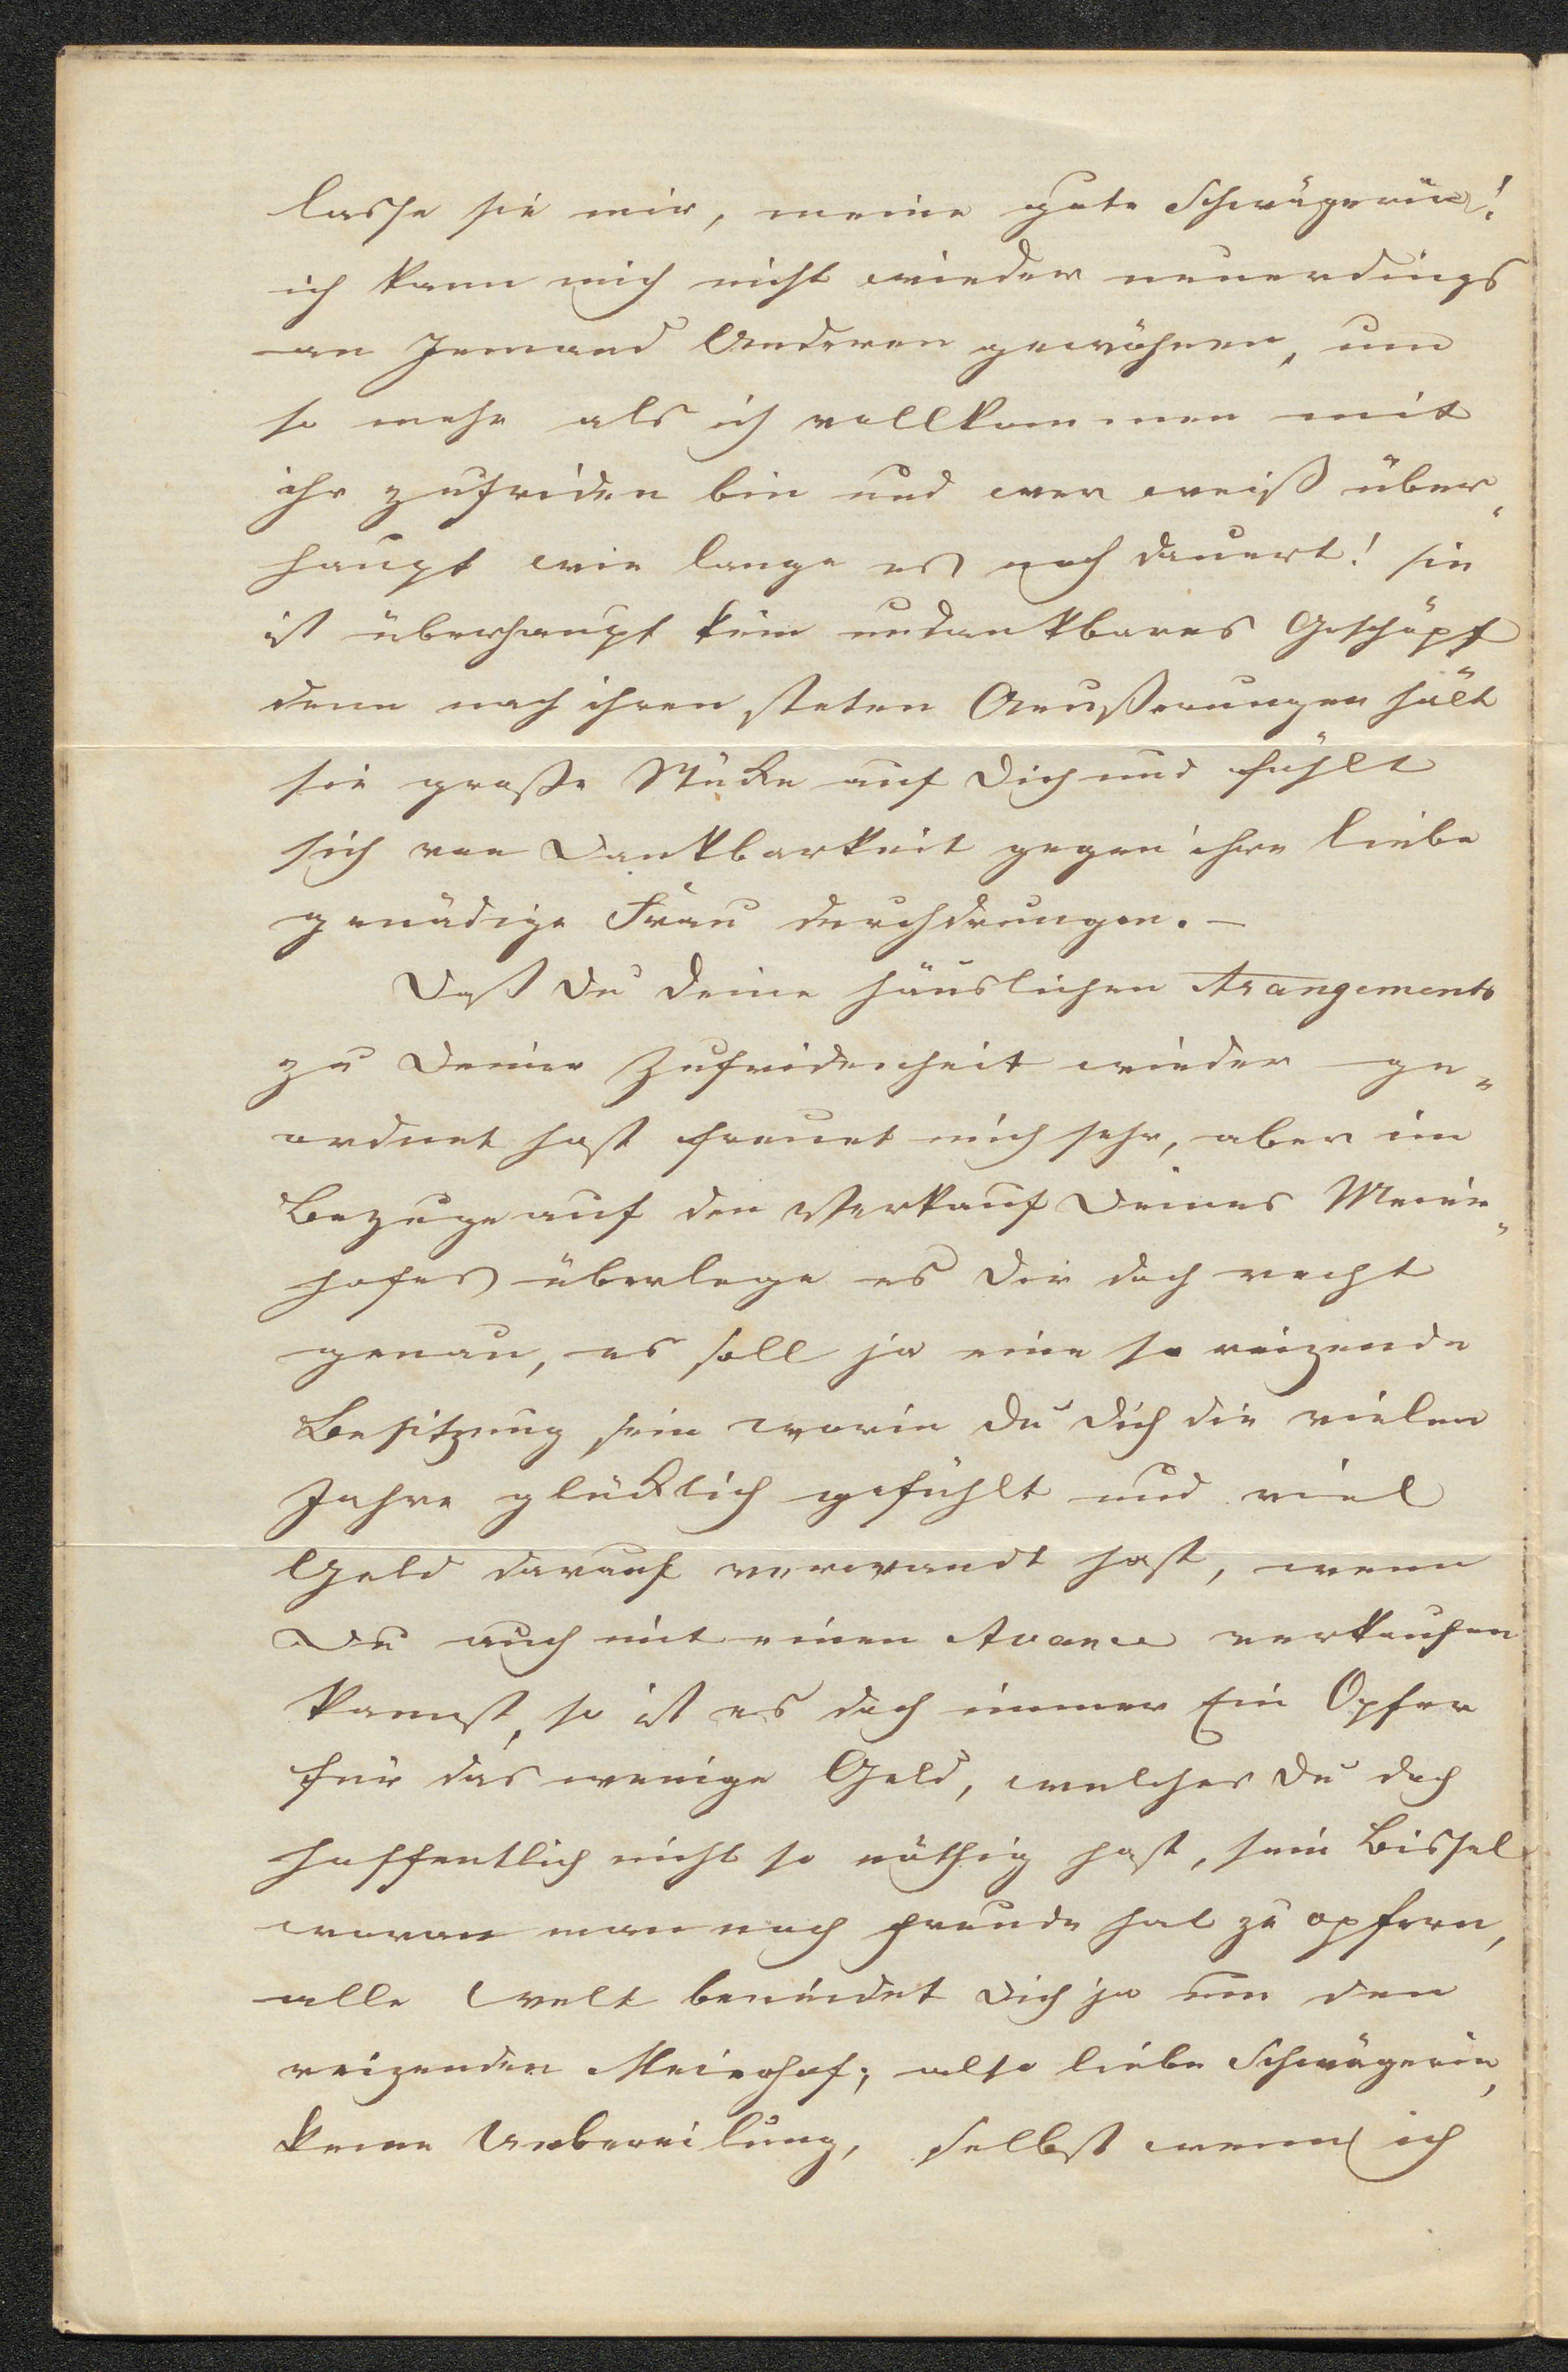 lasse sie mir, meine gute Schwägerin!
ich kann mich nicht wieder neuerdings
an Jemand Anderen gewöhnen, um
so mehr als ich vollkommen mit
ihr zufriden bin und wer weiß über„
haupt wie lange es noch dauert! sie
ist überhaupt kein undankbares Geschöpf
denn nach ihren steten Aeußerungen hält
sie große Stücke auf Dich und fühlt
sich von Dankbarkeit gegen ihre liebe
genädige Frau durchdrungen. –
Daß Du Deine häuslichen Arangements
zu Deiner Zufridenheit wieder ge„
ordnet hast freuet mich sehr, aber im
Bezuge auf den Verkauf Deines Meier„
hofes überlege es Dir doch recht
genau, es soll ja eine so reizende
Besitzung sein worin Du Dich die vielen
Jahre glücklich gefühlt und viel
Geld darauf verwandt hast, wenn
Du auch mit einen Avance verkaufen
kannst, so ist es doch immer Ein Opfer
für das wenige Geld, welches Du doch
hoffentlich nicht so nöthig hast, sein Bissel
woran man noch Freude hat zu opfern,
alle Welt beneidet Dich ja um den
reizenden Meierhof; also liebe Schwägerin,
keine Uebereilung, selbst wenn ich